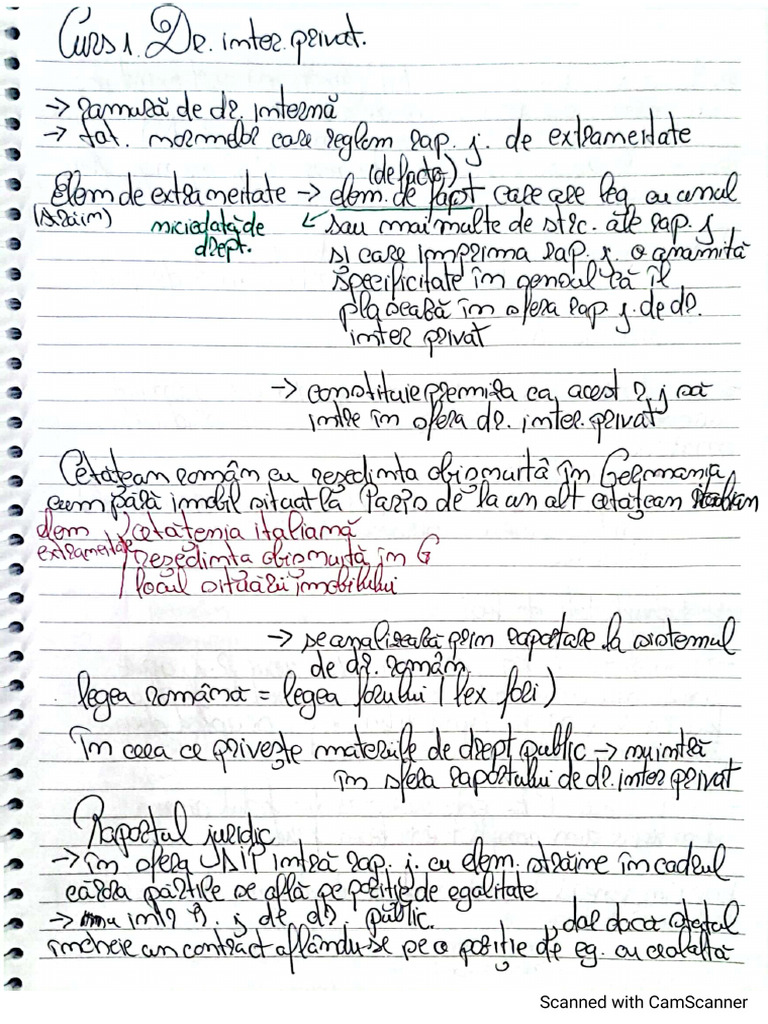 Curs 1. Dr. inter. privat.
→ ramură de dr. internă
→ tot. normelor care reglem rap. j. de extraneitate
(de facto)
Elem de extraneitate → elem. de fapt care are leg cu unul
(străin) niciodată de sau mai multe de strc. ale rap. j
drept. si care imprima rap. j. o anumită
specificitate în sensul că îl
plasează în sfera rap j. de dr.
inter privat
→ constituie premisa ca acest r. j să
intre în sfera dr. inter. privat
Cetățean român cu resedinta obisnuită în Germania
cumpără imobil situat la Paris de la un alt cetățean italian
elem cetătenia italiană
extraneitate resedinta obisnuită în G
locul situării imobilului
→ se analizează prin raportare la sistemul
de dr. român.
legea română = legea forului (lex fori)
În ceea ce privește materiile de drept public → nu intră
în sfera raportului de dr. inter privat
Raportul juridic
→ în sfera DIP intră rap. j. cu elem. străine în cadrul
cărora părțile se află pe poziție de egalitate
→ nu intr R. j de dr. public. , dar daca statul
încheie un contract aflându-se pe o poziție de eg. cu cealaltă
Scanned with CamScanner